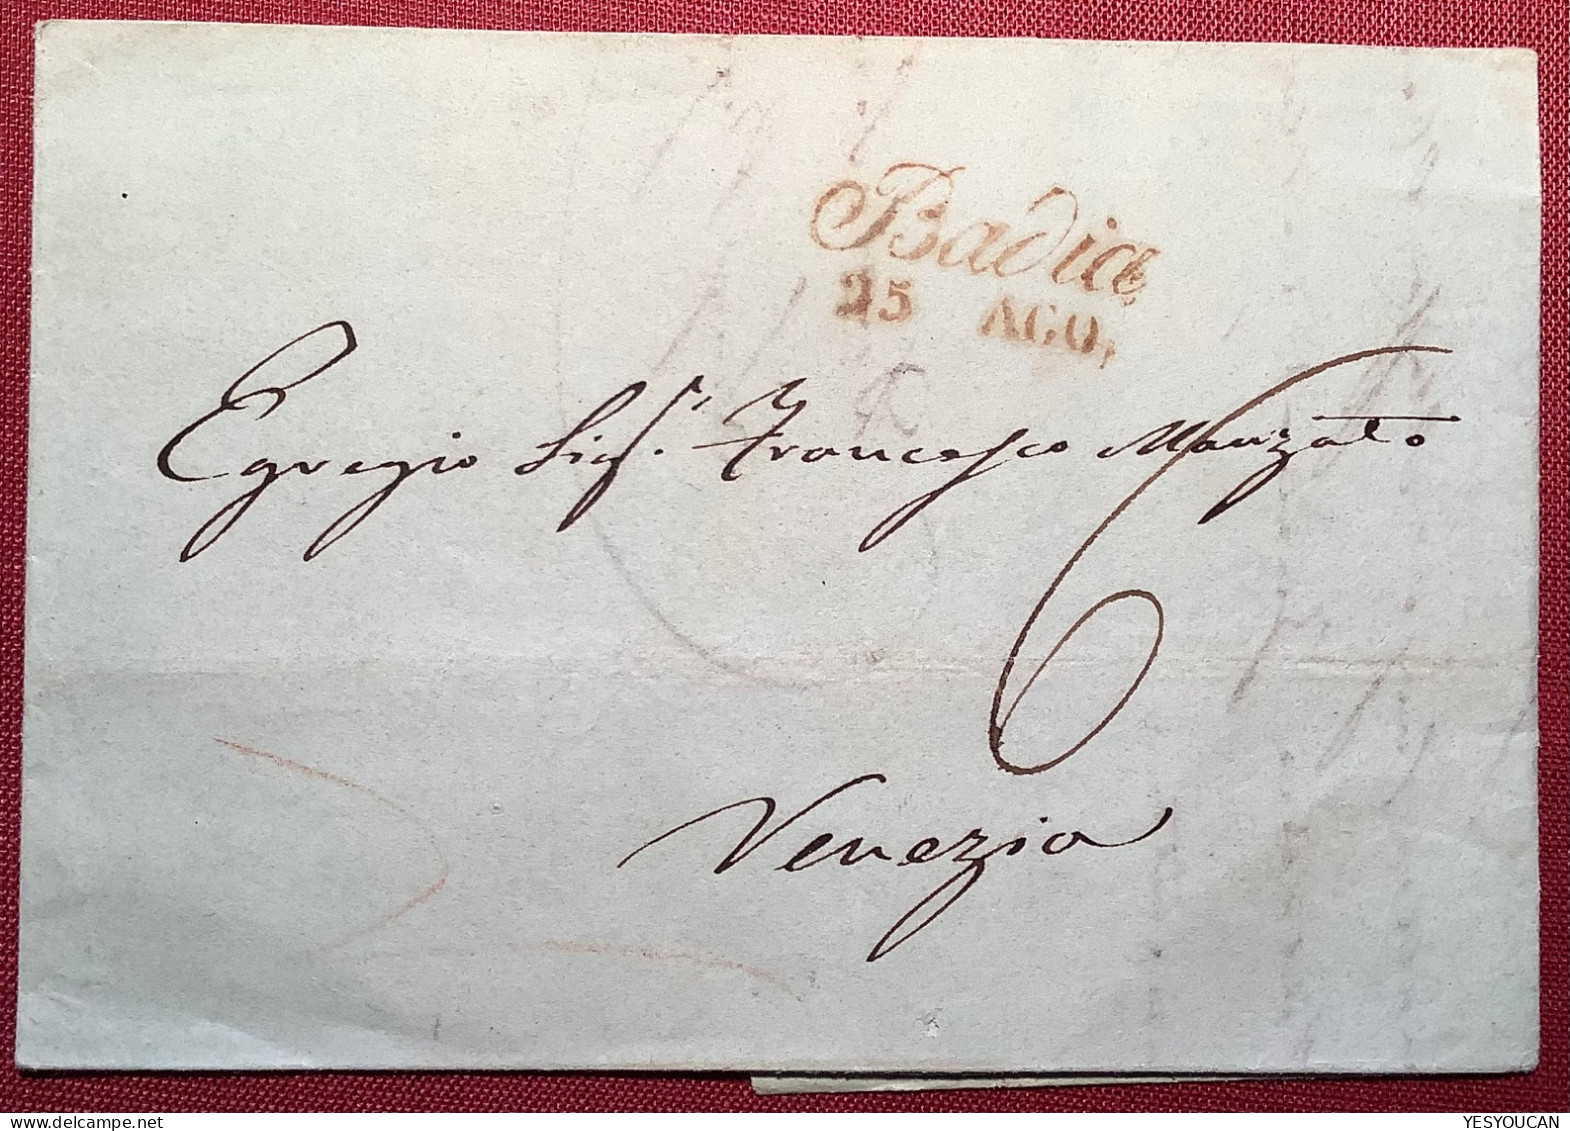 Badia
25 AGO.
Egregio Sigr. Francesco Manzato
6
Venezia
YESYOUCAN